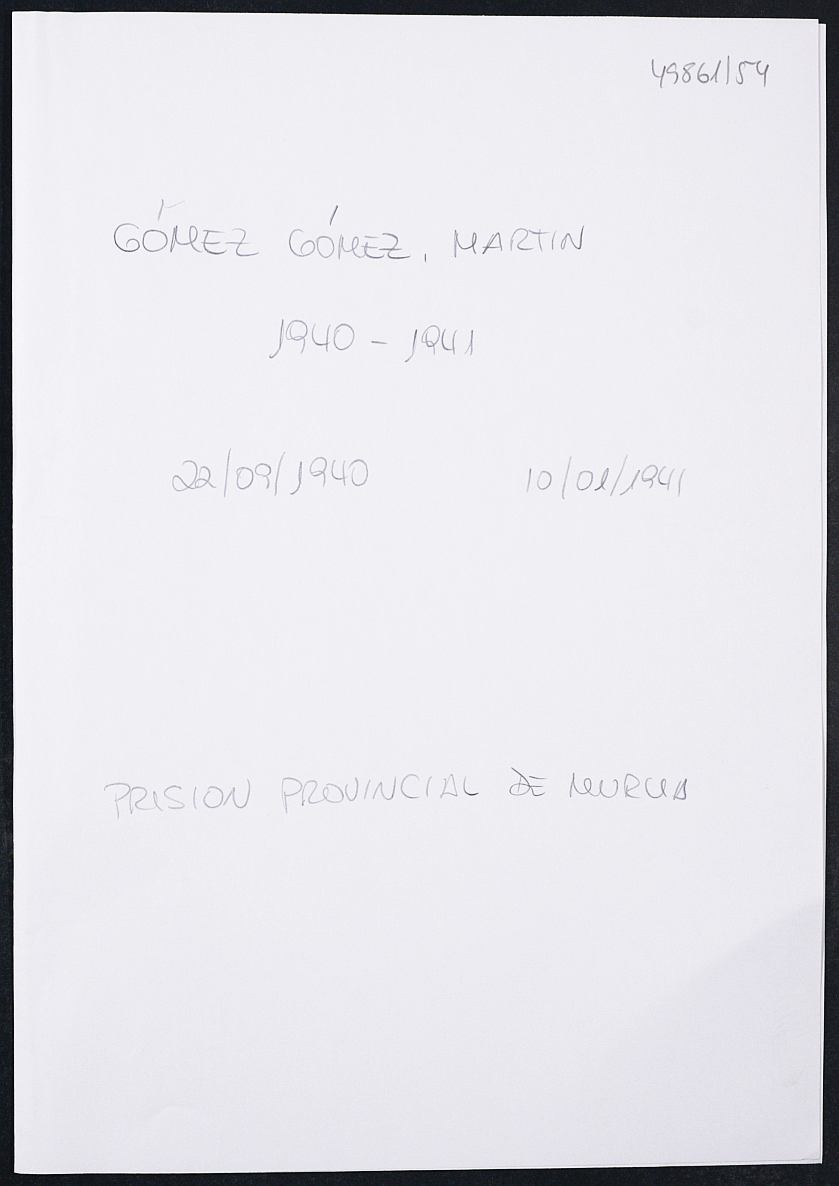 49861/54
GÓMEZ GÓMEZ, MARTIN
1940 - 1941
22/09/1940 10/01/1941
PRISION PROVINCIAL DE MURCIA